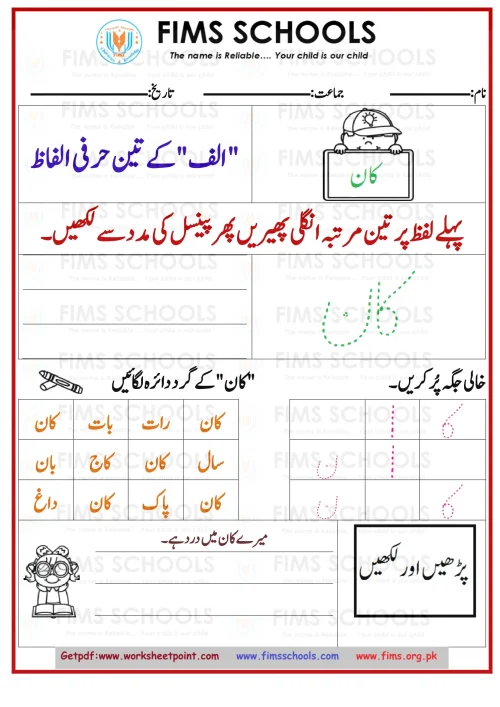 FIMS SCHOOLS
The name is Reliable.... Your child is our child
نام:__________ جماعت:__________ تاریخ:__________
"الف" کے تین حرفی الفاظ
کان
پہلے لفظ پر تین مرتبہ انگلی پھیریں پھر پینسل کی مدد سے لکھیں۔
کان
خالی جگہ پُر کریں۔
"کان" کے گرد دائرہ لگائیں
کا ا
ا ن
کا ن
کان رات بات کان
سال کان کاج بان
کان پاک کان داغ
پڑھیں اور لکھیں
میرے کان میں درد ہے۔
Getpdf:www.worksheetpoint.com www.fimsschools.com www.fims.org.pk